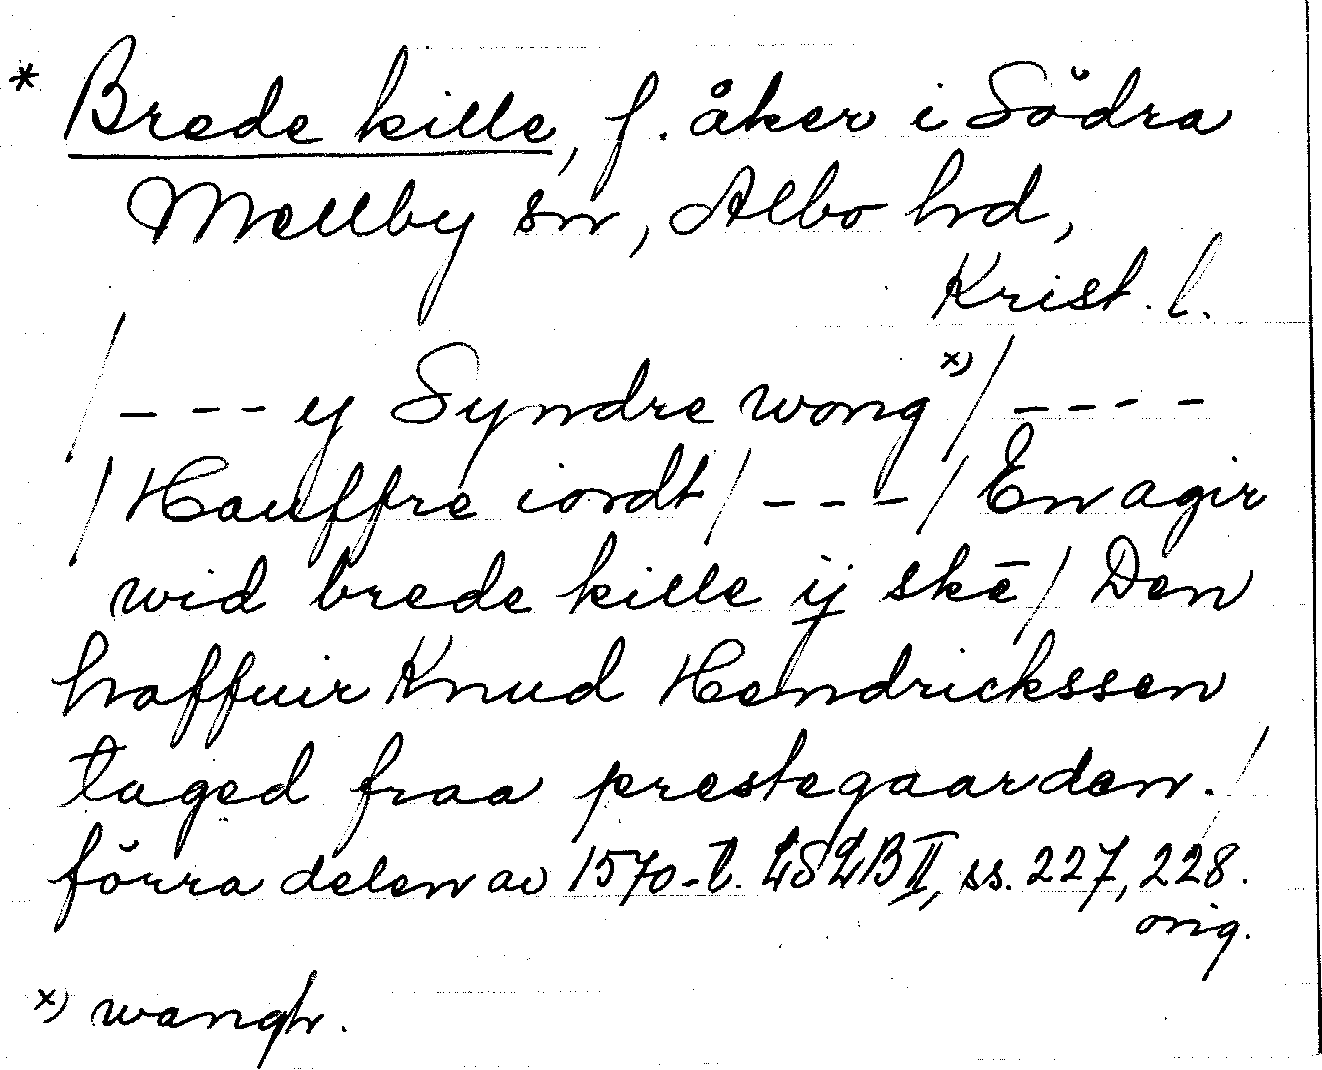 * Brede kille, f. åker i Södra
Mellby sn, Albo hd,
Krist. l.
/ - - - y Syndre wong x) / - - - -
/ Hauffre iordt / - - - / En agir
wid brede kille ij skē / Den
haffuir Knud Hendrickssen
taged fraa prestegaarden. /
förra delen av 1570-t. LSLB II, ss. 227, 228.
orig.
x) wangh.